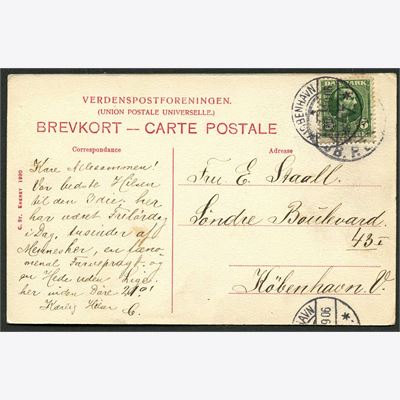 VERDENSPOSTFORENINGEN.
(UNION POSTALE UNIVERSELLE.)
BREVKORT — CARTE POSTALE
Correspondance
Adresse
DANMARK
5
KJØBENHAVN
B. P. E.
Kære Allesammen!
Vor bedste Hilsen
til den 3die; her
har været Frilørdag
i Dag, tusinder af
Mennesker, en
menal Farvepragt og
en Hede uden Lige
her inden Døre 21°!
Kærlig Hilsen
C.
Fru E. Staall.
Søndre Boulevard
43 I
København V.
C. St. Eneret 1920
HAVN
9.06